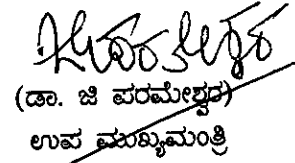 (ಡಾ. ಜಿ ಪರಮೇಶ್ವರ)
ಉಪ ಮುಖ್ಯಮಂತ್ರಿ